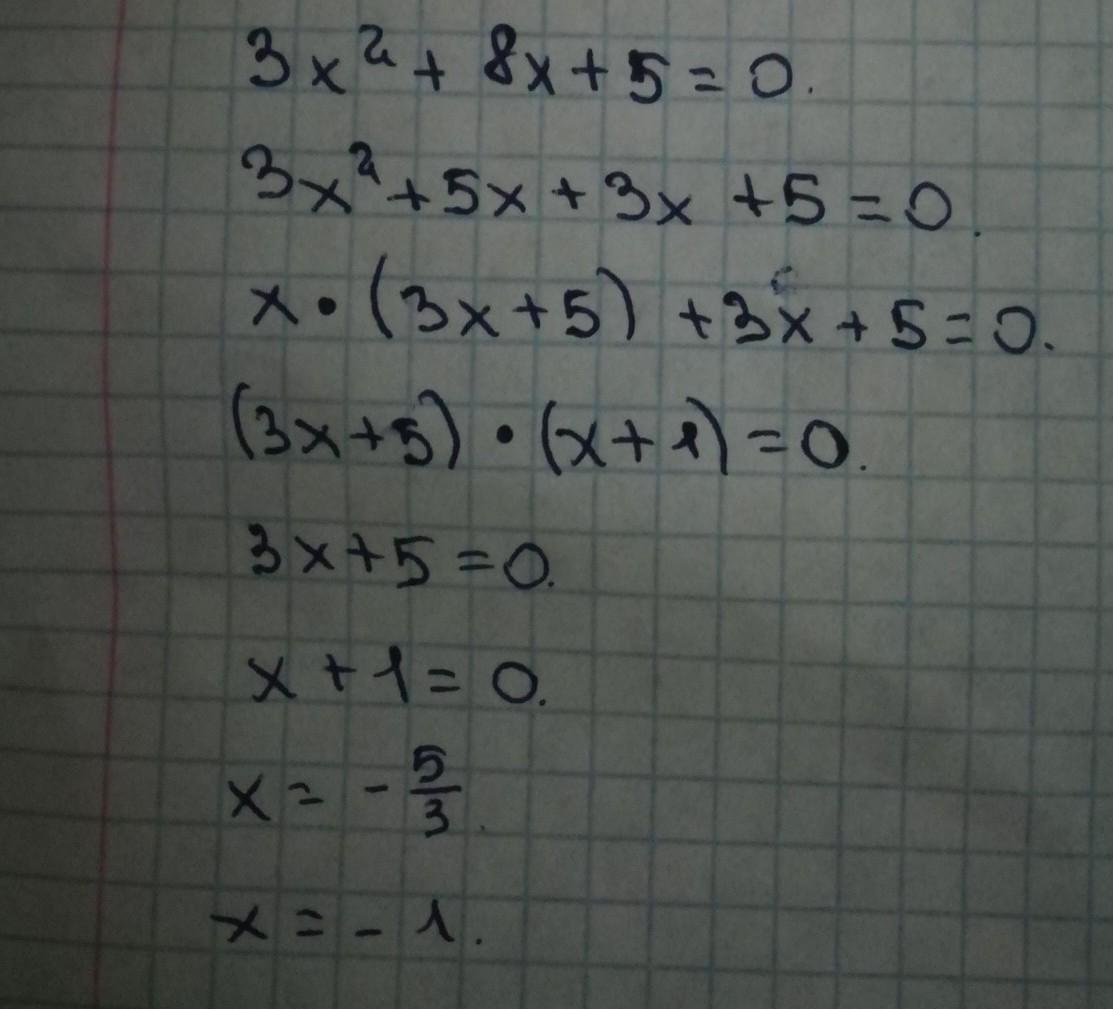 3x² + 8x + 5 = 0.
3x² + 5x + 3x + 5 = 0.
x • (3x + 5) + 3x + 5 = 0.
(3x + 5) • (x + 1) = 0.
3x + 5 = 0.
x + 1 = 0.
x = - 5/3.
x = - 1.